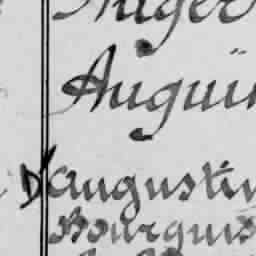 Auger
Auguin
D'augustin
Bourguis